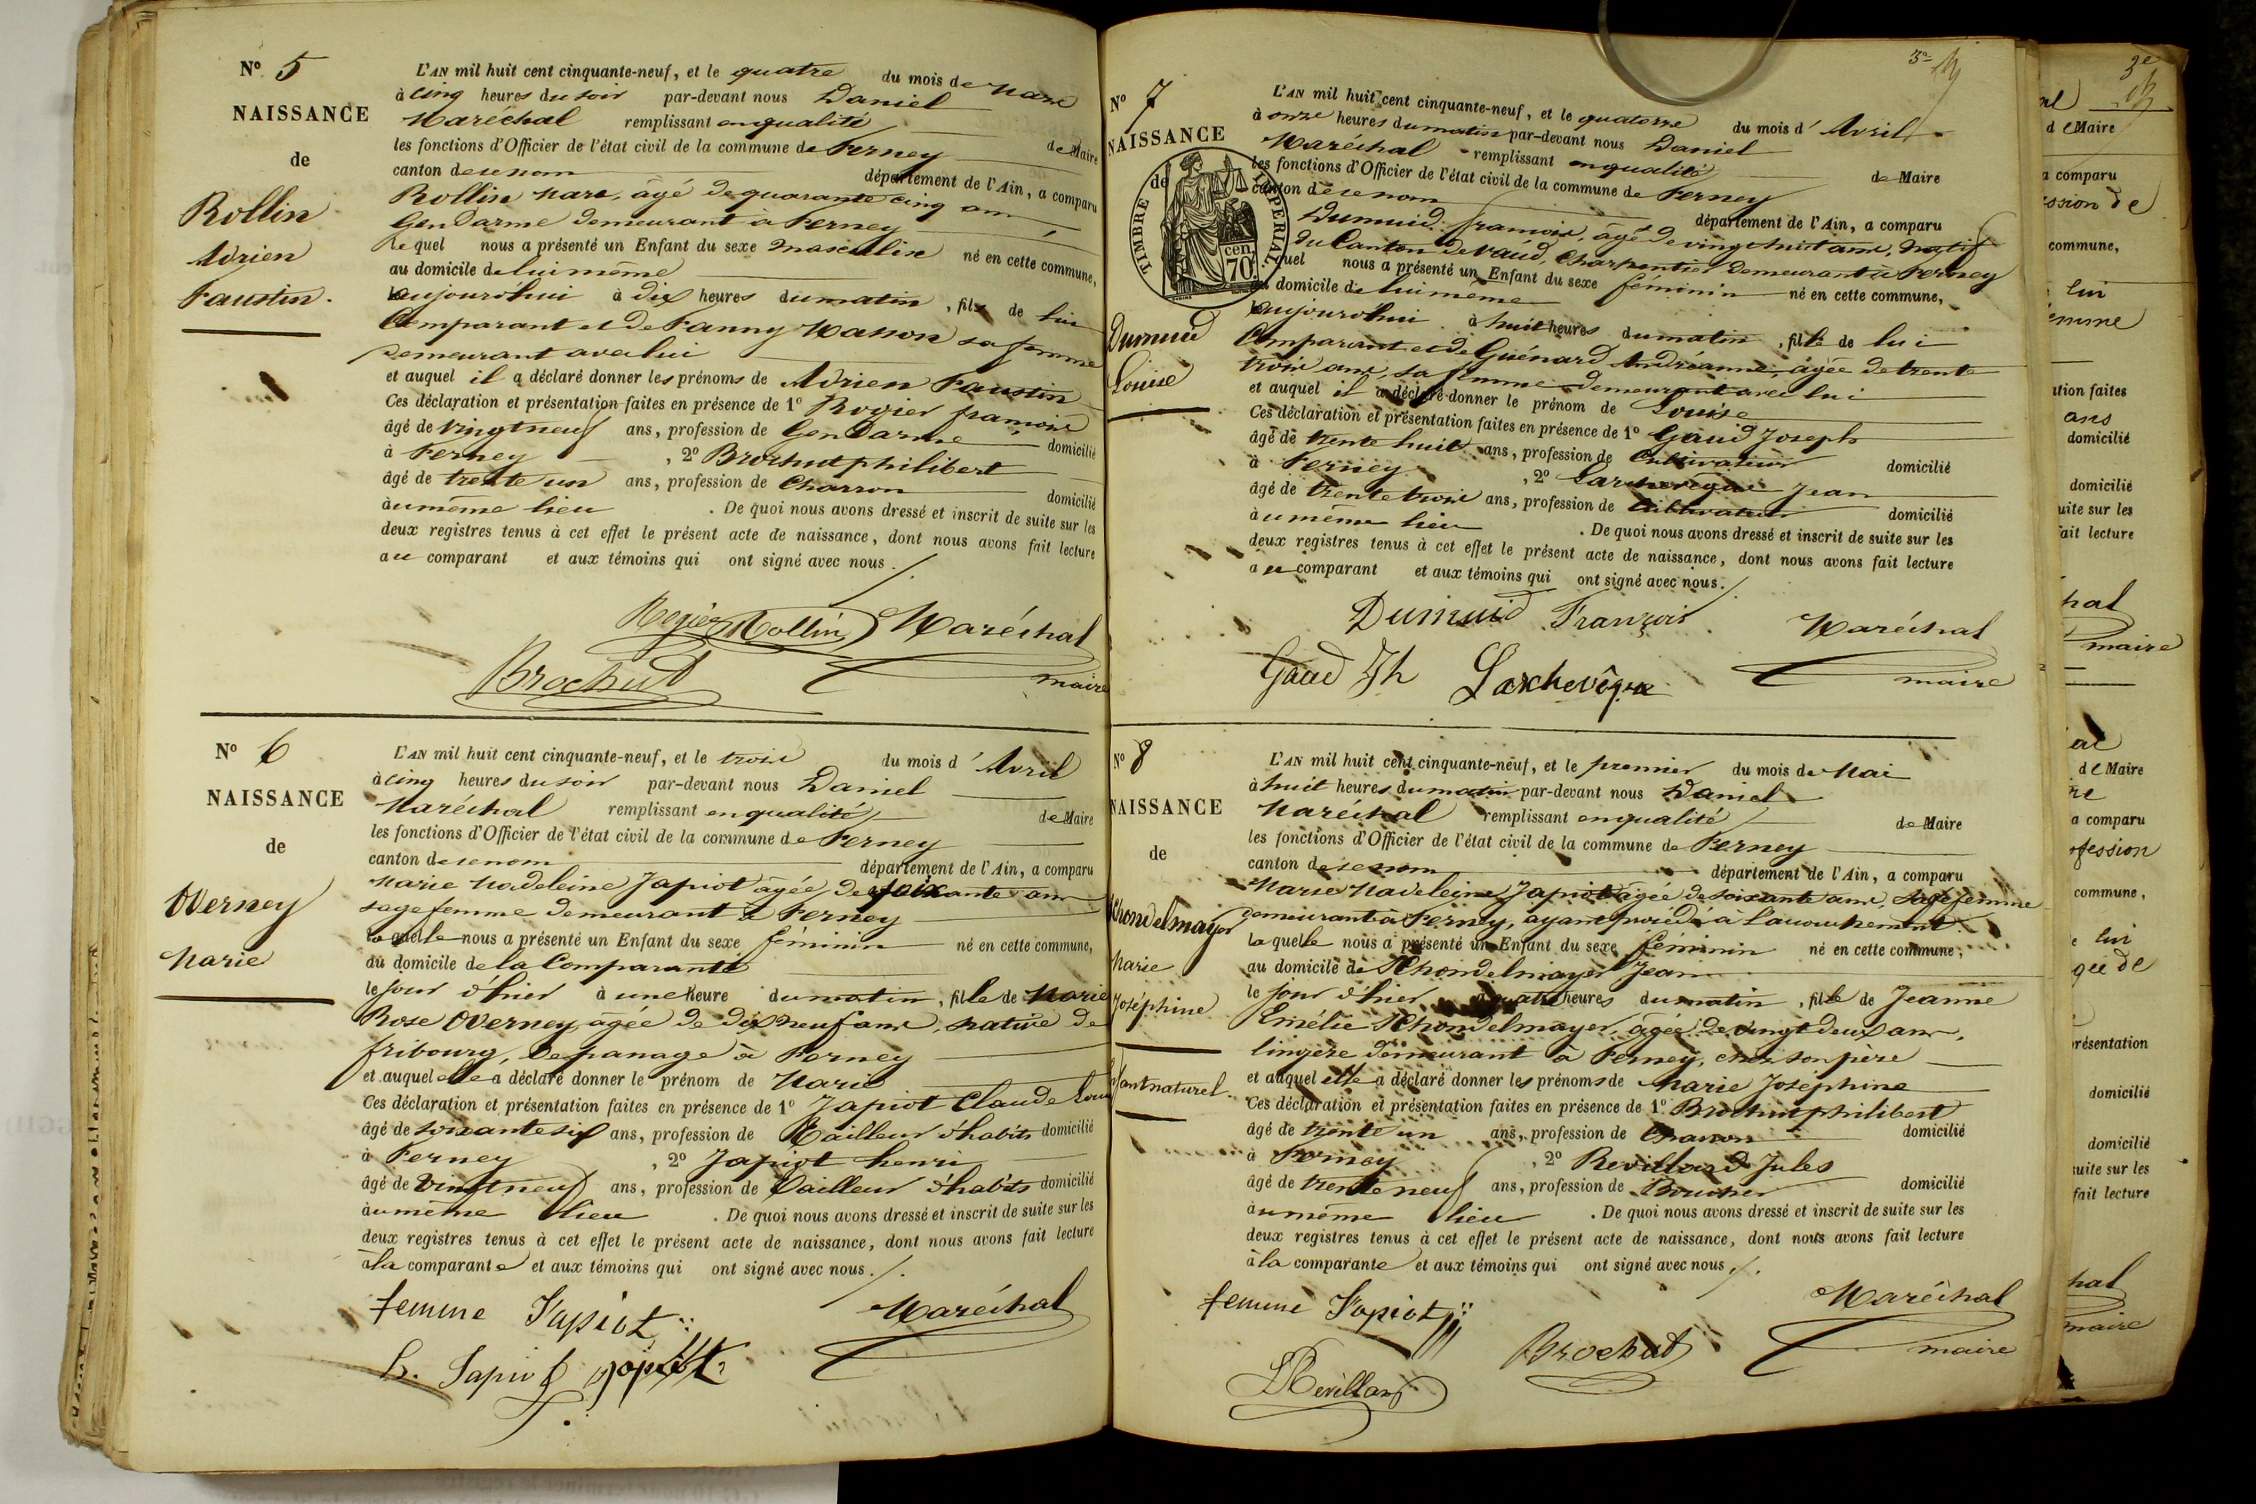 Nº 5
NAISSANCE
de
Rollin
Adrien
Faustin.
L'AN mil huit cent cinquante-neuf, et le quatre du mois de Mars
à cinq heures du soir par-devant nous Daniel
Maréchal remplissant en qualité de Maire
les fonctions d'Officier de l'état civil de la commune de Ferney
canton de ce nom département de l'Ain, a comparu
Rollin Marc, âgé de quarante cinq ans
Gendarme demeurant à Ferney
Lequel nous a présenté un Enfant du sexe masculin né en cette commune,
au domicile de lui même
aujourd'hui à dix heures du matin, fils de lui
Comparant et de Fanny Masson sa femme
demeurant avec lui
et auquel il a déclaré donner les prénoms de Adrien Faustin
Ces déclaration et présentation faites en présence de 1º Rogier françois
âgé de vingt neuf ans, profession de Gendarme domicilié
à Ferney, 2º Brochut philibert
âgé de trente un ans, profession de Charron domicilié
au même lieu. De quoi nous avons dressé et inscrit de suite sur les
deux registres tenus à cet effet le présent acte de naissance, dont nous avons fait lecture
au comparant et aux témoins qui ont signé avec nous.
Rogier Rollin Maréchal
Brochut maire
Nº 6
NAISSANCE
de
Overney
Marie
L'AN mil huit cent cinquante-neuf, et le trois du mois d'Avril
à cinq heures du soir par-devant nous Daniel
Maréchal remplissant en qualité de Maire
les fonctions d'Officier de l'état civil de la commune de Ferney
canton de ce nom département de l'Ain, a comparu
Marie Madeleine Japiot âgée de soixante ans
sage femme demeurant à Ferney
laquelle nous a présenté un Enfant du sexe féminin né en cette commune,
au domicile de la Comparante
le jour d'hier à une heure du matin, fille de Marie
Rose Overney âgée de dix neuf ans, native de
fribourg, de panage à Ferney
et auquel elle a déclaré donner le prénom de Marie
Ces déclaration et présentation faites en présence de 1º Japiot Claude Louis
âgé de soixante six ans, profession de Tailleur d'habits domicilié
à Ferney, 2º Japiot henri
âgé de Vingt neuf ans, profession de Tailleur d'habits domicilié
au même lieu. De quoi nous avons dressé et inscrit de suite sur les
deux registres tenus à cet effet le présent acte de naissance, dont nous avons fait lecture
à la comparante et aux témoins qui ont signé avec nous.
femme Japiot Maréchal
h. Japiot Japiot
3e
Nº 7
NAISSANCE
de
TIMBRE IMPERIAL.
70 cen.
Dumuid
Louise
L'AN mil huit cent cinquante-neuf, et le quatorze du mois d'Avril
à onze heures du matin par-devant nous Daniel
Maréchal remplissant en qualité de Maire
les fonctions d'Officier de l'état civil de la commune de Ferney
canton de ce nom département de l'Ain, a comparu
Dumuid françois, âgé de vingt huit ans, natif
du Canton de Vaud, Charpentier demeurant à Ferney
quel nous a présenté un Enfant du sexe féminin né en cette commune,
au domicile de lui même
aujourd'hui à huit heures du matin, fille de lui
Comparant et de Guénard Andréanne, âgée de trente
trois ans, sa femme demeurant avec lui
et auquel il a déclaré donner le prénom de Louise
Ces déclaration et présentation faites en présence de 1º Gaud Joseph
âgé de trente huit ans, profession de Cultivateur domicilié
à Ferney, 2º Larchevêque Jean
âgé de trente trois ans, profession de Cultivateur domicilié
au même lieu. De quoi nous avons dressé et inscrit de suite sur les
deux registres tenus à cet effet le présent acte de naissance, dont nous avons fait lecture
au comparant et aux témoins qui ont signé avec nous.
Dumuid François Maréchal
Gaud Jh Larchevêque maire
Nº 8
NAISSANCE
de
Khondelmayer
Marie
Joséphine
Enfant naturel.
L'AN mil huit cent cinquante-neuf, et le premier du mois de Mai
à huit heures du matin par-devant nous Daniel
Maréchal remplissant en qualité de Maire
les fonctions d'Officier de l'état civil de la commune de Ferney
canton de ce nom département de l'Ain, a comparu
Marie Madeleine Japiot âgée de soixante ans, sage femme
demeurant à Ferney, ayant procédé à l'accouchement
laquelle nous a présenté un Enfant du sexe féminin né en cette commune,
au domicile de Khondelmayer Jean
le jour d'hier à quatre heures du matin, fille de Jeanne
Emélie Khondelmayer, âgée de vingt deux ans,
lingère demeurant à Ferney, chez son père
et auquel elle a déclaré donner les prénoms de Marie Joséphine
Ces déclaration et présentation faites en présence de 1º Brochut philibert
âgé de trente un ans, profession de Charron domicilié
à Ferney, 2º Revillard Jules
âgé de trente neuf ans, profession de Boucher domicilié
au même lieu. De quoi nous avons dressé et inscrit de suite sur les
deux registres tenus à cet effet le présent acte de naissance, dont nous avons fait lecture
à la comparante et aux témoins qui ont signé avec nous.
femme Japiot Maréchal
Revillard Brochut maire
3e
de Maire
a comparu
commune,
lui
tion faites
ans
domicilié
domicilié
uite sur les
fait lecture
hal
maire
de Maire
a comparu
ofession
commune,
lui
gée de
résentation
domicilié
domicilié
suite sur les
fait lecture
hal
maire